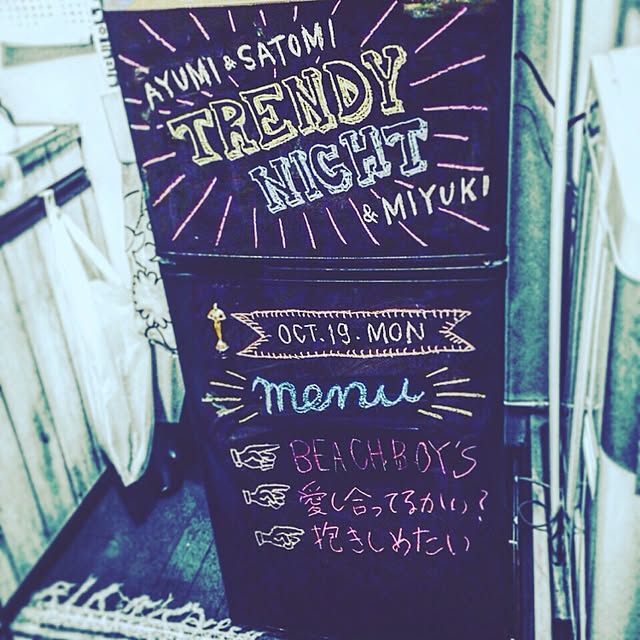 AYUMI & SATOMI
TRENDY
NIGHT
& MIYUKI
OCT.19.MON
menu
BEACHBOY'S
愛し合ってるかい?
抱きしめたい